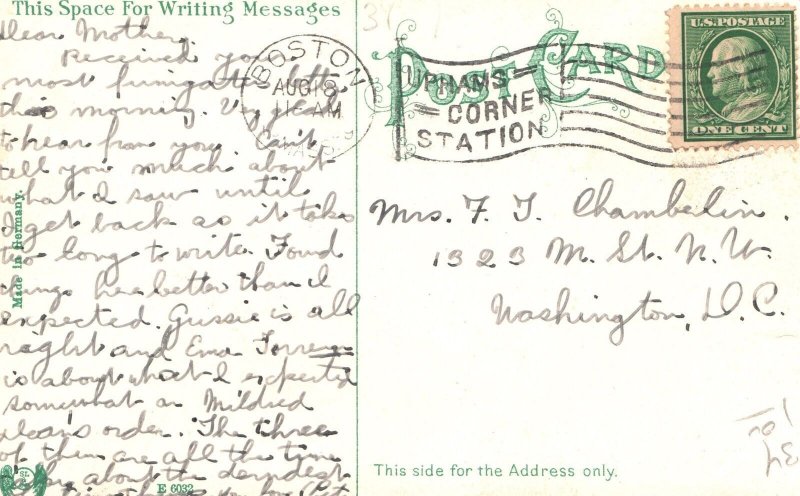 This Space For Writing Messages
Dear Mother,
Received your
most
this morning. Very glad
to hear from you. Can't
tell you much about
what I saw until
I get back as it takes
too long to write. Found
things here better than I
expected. Gussie is all
right and Ema
is about what I expected
somewhat on Mildred
order. The three
of them are all the time
about the
Made in Germany.
E 6032
POST CARD
BOSTON
AUG 18
11 AM
MASS.
UPHAMS
CORNER
STATION
U.S. POSTAGE
ONE CENT
Mrs. F. J. Chamberlin.
1323 M. St. N.W.
Washington, D.C.
This side for the Address only.